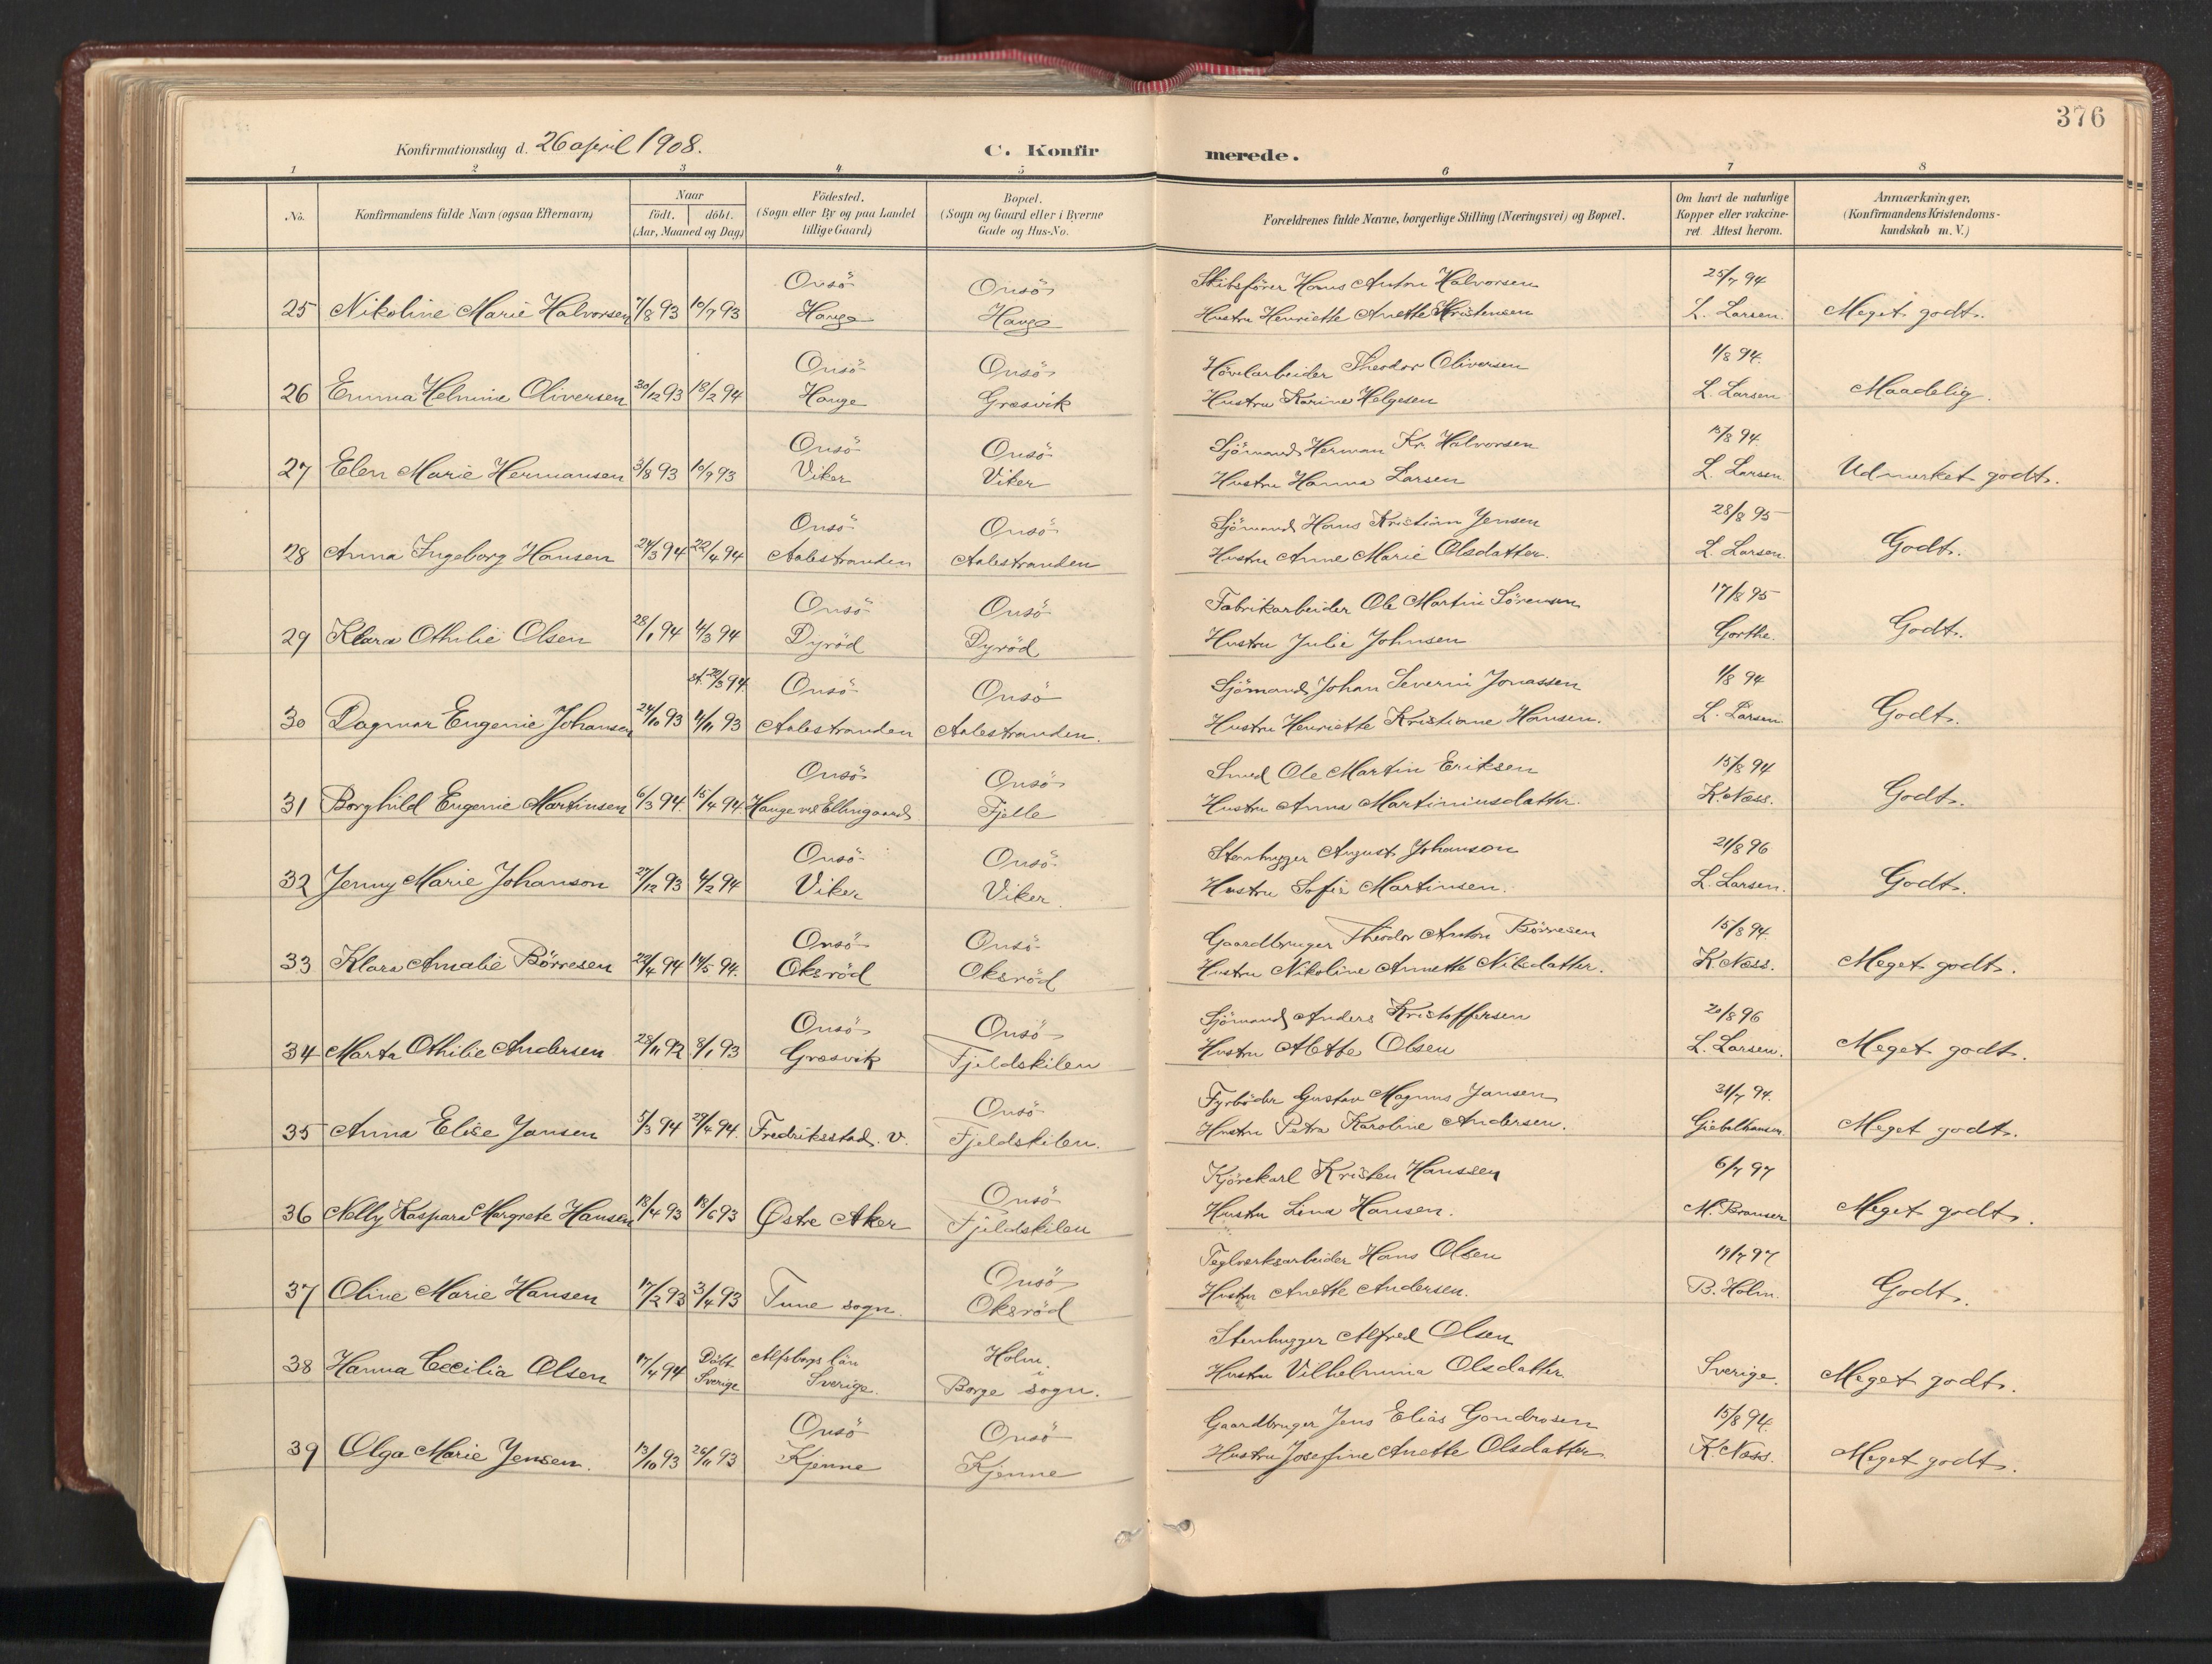 376
Konfirmationsdag d. 26 april 1908.
C. Konfirmerede.
1 2 3 4 5 6 7 8
No.
Konfirmandens fulde Navn (ogsaa Efternavn)
Naar
födt. döbt.
(Aar, Maaned og Dag)
Födested.
(Sogn eller By og paa Landet
tillige Gaard)
Bopæl.
(Sogn og Gaard eller i Byerne
Gade og Hus-No.
Forældrenes fulde Navne, borgerlige Stilling (Næringsvei) og Bopæl.
Om havt de naturlige
Kopper eller vakcine-
ret. Attest herom.
Anmærkninger.
(Konfirmandens Kristendoms-
kundskab m. V.)
Onsö Onsö Skibsfører Hans Anton Halvorsen 25/7 94
25 Nikoline Marie Halvorsen 7/8 93 10/9 93 Hauge Hauge Hustru Henriette Anette Kristensen L. Larsen. Meget godt.
Onsö Onsö Hövlarbeider Theodor Oliversen 1/8 94.
26 Emma Helmine Oliversen 30/12 93 18/2 94 Hauge Græsvik Hustru Karine Helgesen L. Larsen Maadelig.
Onsö Onsö Sjömand Herman Kr. Halvorsen 15/8 94.
27 Elen Marie Hermansen 3/8 93 10/9 93 Viker Viker Hustru Hanna Larsen L. Larsen. Udmerket godt.
Onsö Onsö Sjömand Hans Kristian Jensen 28/8 95
28 Anna Ingeborg Hansen 24/3 94 22/4 94 Aalestranden Aalestranden Hustru Anne Marie Olsdatter. L. Larsen. Godt.
Onsö Onsö Fabrikarbeider Ole Martin Sörensen 17/8 95
29 Klara Othilie Olsen 28/1 94 4/3 94 Dyröd Dyröd Hustru Julie Johnsen Gorthe. Godt.
st. 20/3 94. Onsö Onsö Sjömand Johan Severin Jonassen 1/8 94
30 Dagmar Eugenie Johansen 24/10 93 4/11 93 Aalestranden Aalestranden. Hustru Henriette Kristiane Hansen. L. Larsen Godt.
Onsö Onsö Smed Ole Martin Eriksen 15/8 94
31 Borghild Eugenie Martinsen 6/3 94. 15/4 94. Hauge ved Elingaard Fjelle Hustru Anna Martiniusdatter. K. Næss. Godt.
Onsö Onsö Stenhugger August Johanson 21/8 96
32 Jenny Marie Johanson 27/12 93 4/2 94 Viker Viker. Hustru Sofie Martinsen. L. Larsen. Godt.
Onsö Onsö Gaardbruger Theodor Anton Börresen 15/8 94.
33 Klara Amalie Börresen 22/4 94 14/5 94. Oksröd Oksröd Hustru Nikoline Annette Nilsdatter. K. Næss. Meget godt.
Onsö Onsö Sjömand Anders Kristoffersen 20/8 96
34 Marta Othilie Andersen 28/11 92 8/1 93 Græsvik Fjeldskilen Hustru Alette Olsen L. Larsen. Meget godt.
Onsö Fyrböder Gustav Magnus Jansen 31/7 94.
35 Anna Elise Jansen 5/3 94 29/4 94. Fredriksstad. V. Fjeldskilen. Hustru Petra Karoline Andersen. Giebelhausen. Meget godt.
Onsö Kjörekarl Kristen Hanssen 6/7 97
36 Nelly Kaspara Margrete Hansen 18/4 93 18/6 93 Østre Aker Fjeldskilen Hustru Lina Hansen. M. Brauser Meget godt.
Onsö Teglverksarbeider Hans Olsen 19/7 97
37 Oline Marie Hansen 17/2 93 3/4 93 Tune sogn. Oksröd Hustru Anette Andersen. B. Holm. Godt.
Döbt Alfsborgs län Holm. Stenhugger Alfred Olsen
38 Hanna Cecilia Olsen 17/4 94 Sverige Sverige. i Borge sogn. Hustru Vilhelmina Olsdatter. Sverige. Meget godt.
Onsö Onsö Gaardbruger Jens Elias Gondrosen 15/8 94.
39 Olga Marie Jensen. 13/10 93 26/11 93 Kjenne Kjenne Hustru Josefine Anette Olsdatter. K. Næss. Meget godt.